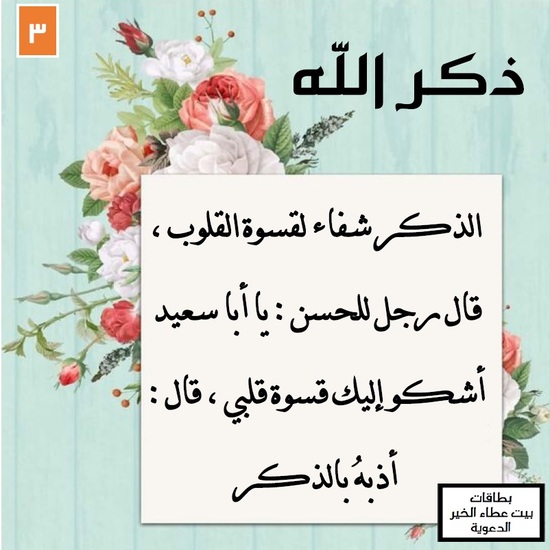 ٣
ذكر الله
الذكر شفاء لقسوة القلوب ،
قال رجل للحسن : يا أبا سعيد
أشكو إليك قسوة قلبي ، قال :
أذبهُ بالذكر
بطاقات
بيت عطاء الخير
الدعوية